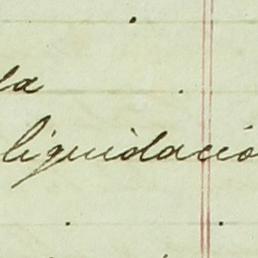 la
liquidació